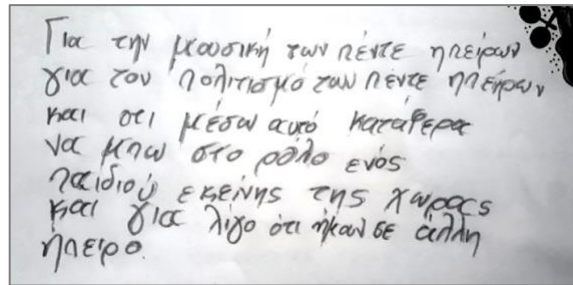 Για την μουσική των πέντε ηπείρων
για τον πολιτισμό των πέντε ηπείρων
και οτι μέσω αυτό κατάφερα
να μπω στο ρόλο ενός
παιδιού εκείνης της χωρας
και για λίγο ότι ήμουν σε άλλη
ήπειρο.